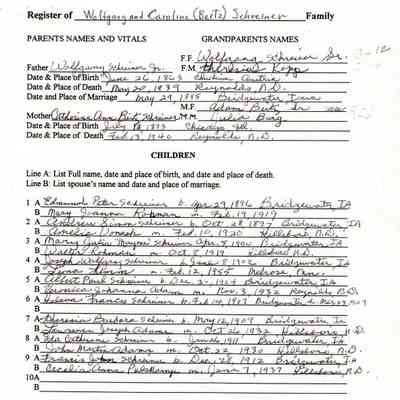 Register of Wolfgang and Caroline (Beitz) Schreiner Family
PARENTS NAMES AND VITALS GRANDPARENTS NAMES
F.F. Wolfgang Schreiner Sr.
Father Wolfgang Schreiner Jr. F.M. Theresia
Date & Place of Birth June 26, 1863 Austria
Date & Place of Death May 20, 1939 Reynolds, N.D.
Date and Place of Marriage May 29, 1895 Bridgewater Iowa
M.F. Adam
Mother Catherine Ann M.M. Julia
Date & Place of Birth July 1873 Chicago Ill.
Date & Place of Death Feb 13, 1940 Reynolds, N.D.
CHILDREN
Line A: List Full name, date and place of birth, and date and place of death.
Line B: List spouse's name and date and place of marriage.
1 A Edmund Peter Schreiner b. Apr 29, 1896 Bridgewater, IA
B Mary Rohman m. Feb. 19, 1919
2 A Andrew Simon Schreiner b. Oct 28, 1897 Bridgewater IA
B Amelia m. Feb. 10, 1920 Hillsboro, N.D.
3 A Mary Schreiner Apr. 8, 1900 Bridgewater IA
B Walter Rohman m. Oct 8, 1919 Hillsboro N.D.
4 A Joseph Wolfgang Schreiner b. 1902 Bridgewater, IA
B m. Feb. 12, 1955 Melrose, Minn.
5 A Albert Paul Schreiner Dec. 1904 Bridgewater IA
B Veronica Adams m. Nov. 3, 1932 Reynolds N.D.
6 A Helena Frances Schreiner b. Feb 14, 1907 Bridgewater
B
7 A Theresia Barbara Schreiner b. May 12, 1909 Bridgewater IA
B Lawrence Joseph Adams m. Oct 26, 1932 Hillsboro, N.D.
8 A Ida Catherine Schreiner b. Jan 1911 Bridgewater, IA
B John Martin Adams m. Oct 22, 1930 Hillsboro, N.D.
9 A Francis John Schreiner b. Dec. 28, 1912 Bridgewater, IA
B Cecelia Anne m. June 7, 1937 Hillsboro, N.D.
10A
B